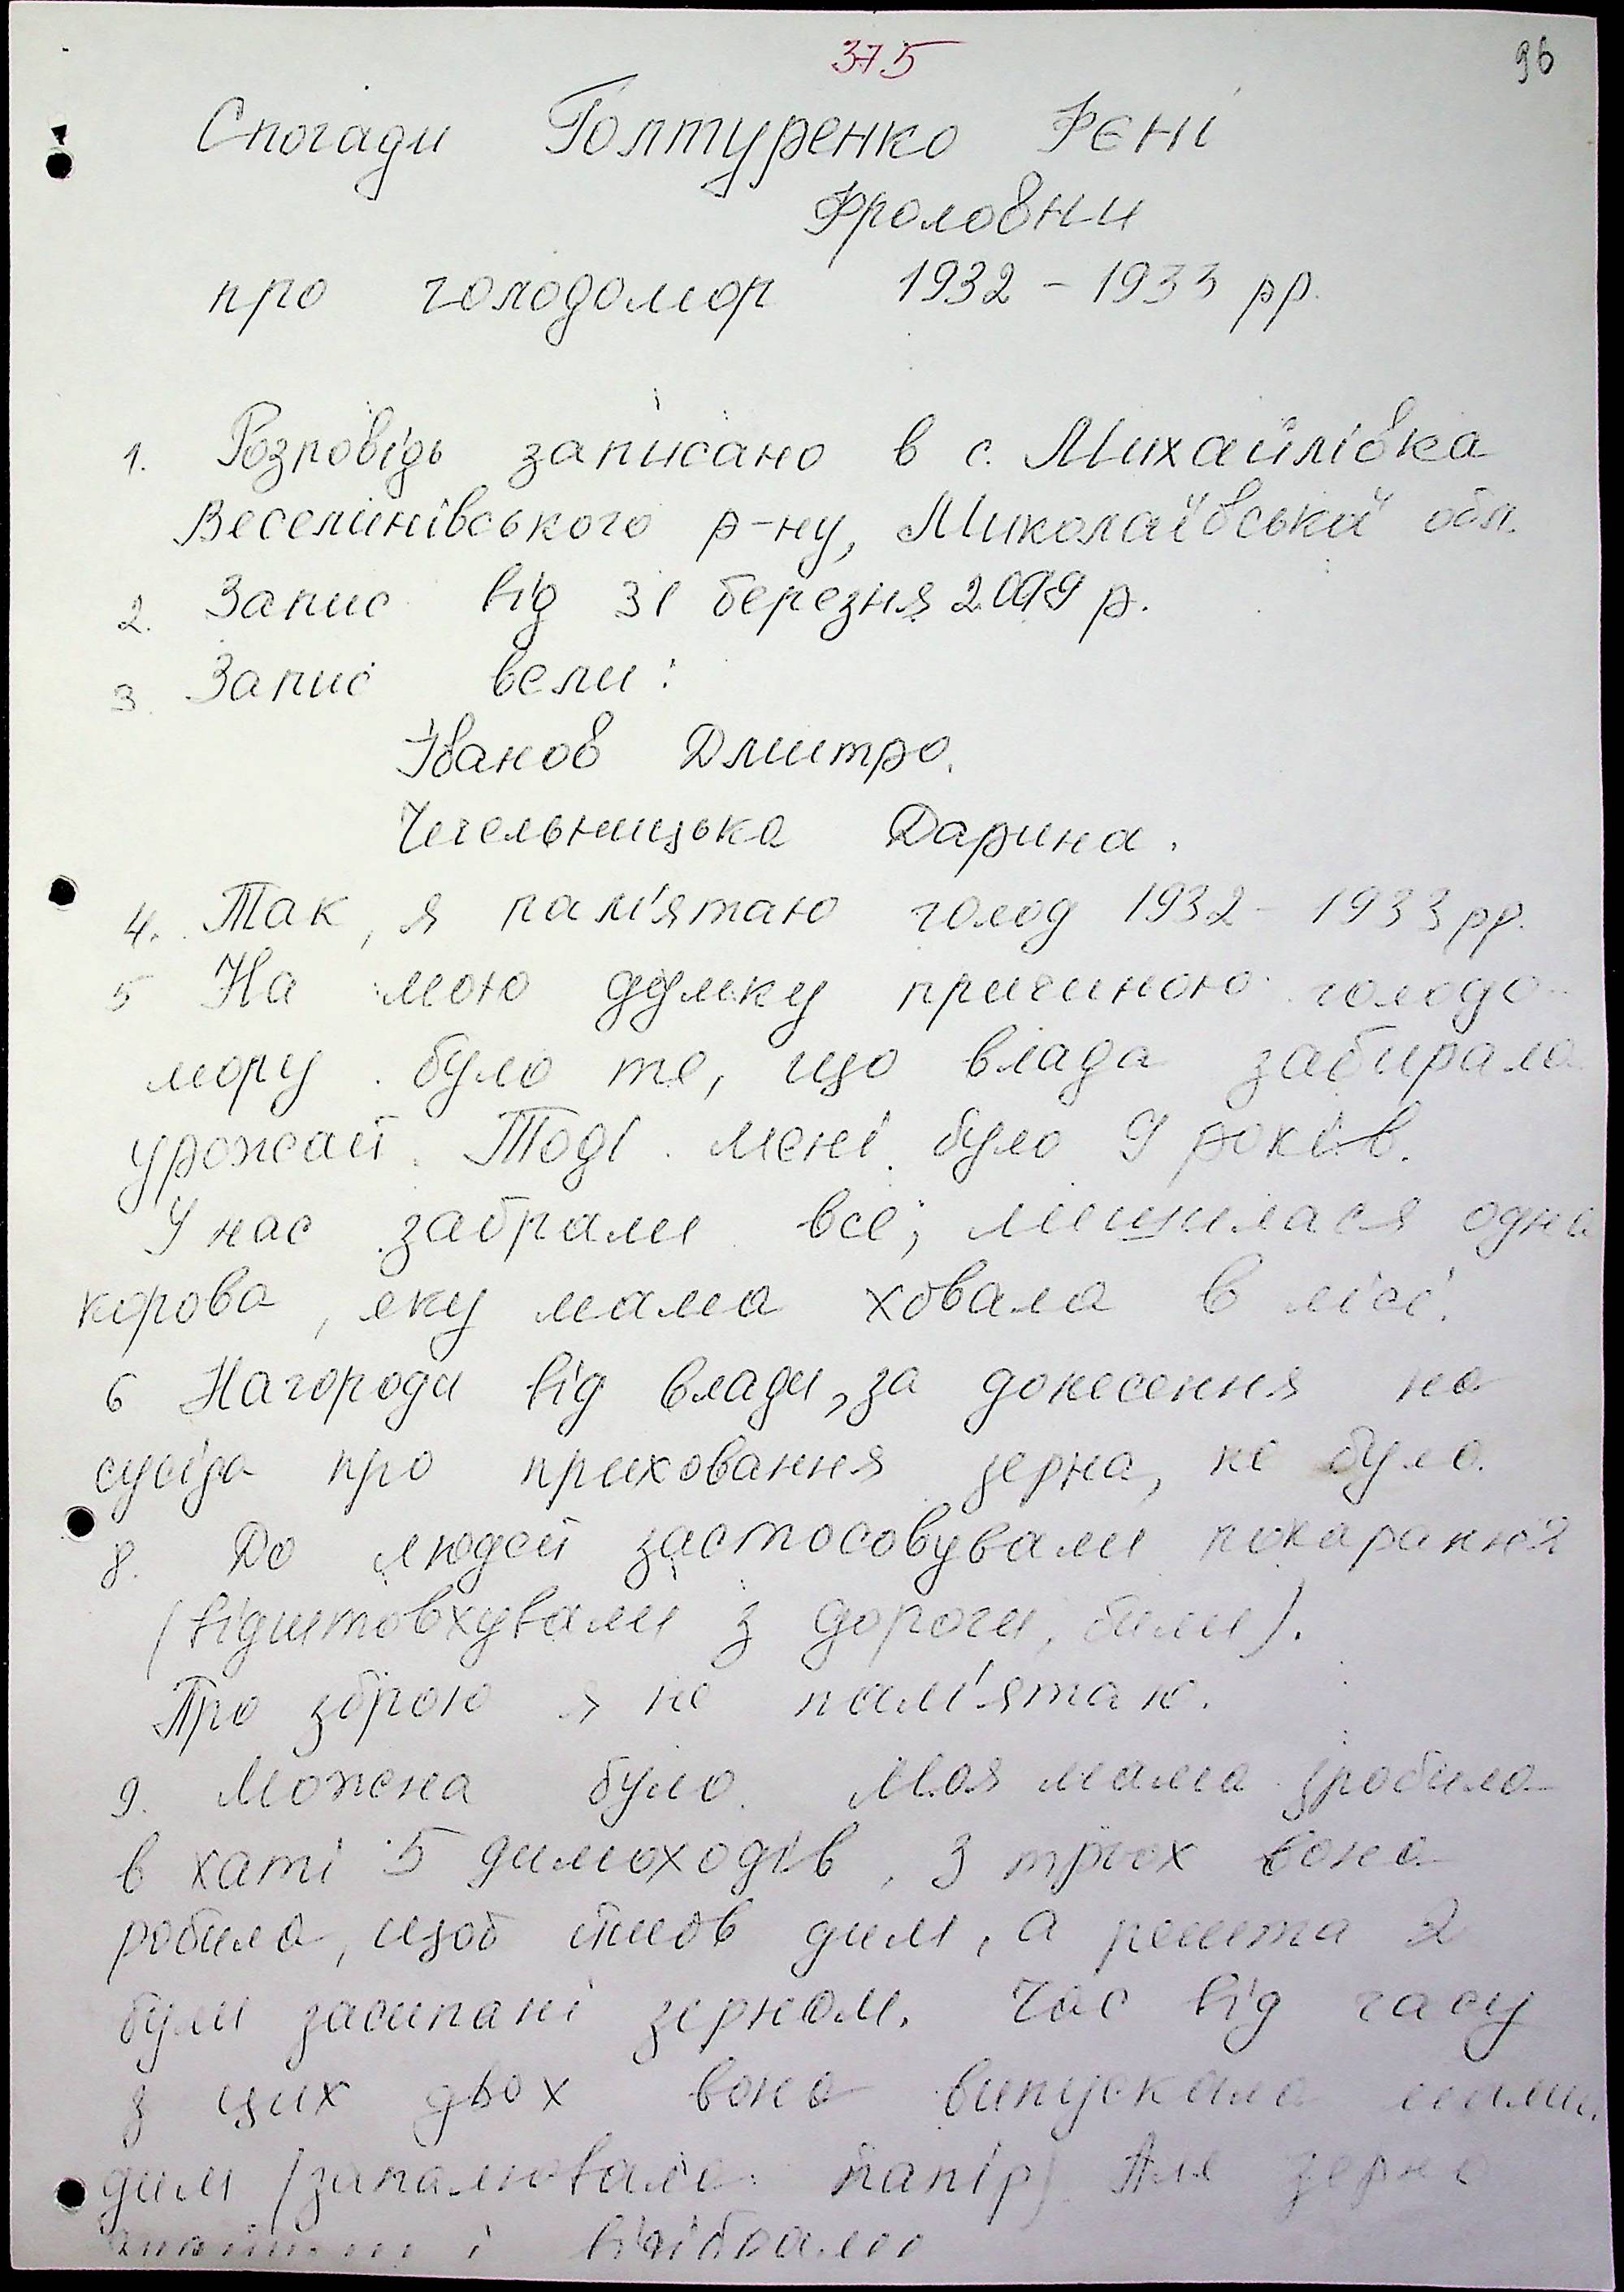 375
96
Спогади Голтуренко Фєні
Фроловни
про голодомор 1932 – 1933 рр.
1. Розповідь записано в с. Михайлівка
Веселинівського р-ну, Миколаївської обл.
2. Запис від 31 березня р.
3. Запис вели:
Іванов Дмитро.
Чигельницька Дарина.
4. Так, я пам'ятаю голод 1932 – 1933 рр.
5 На мою думку причиною голодо-
мору було те, що влада забирала
урожай. Тоді мені було 9 років.
У нас забрали все, лишилася одна
корова, яку мама ховала в лісі.
6 Нагороди від влади, за донесення на
сусіда про приховання зерна, не було.
8. До людей застосовували покарання
(відштовхували з дороги, били).
Про зброю я не пам'ятаю.
9. Можна було. Моя мама зробила
в хаті 5 димоходів, з трьох вона
робила, щоб йшов дим, а решта 2
були засипані зерном. Час від часу
з цих двох вона випускала
дим (запалювала папір). Але зерно
знайшли і відібрали